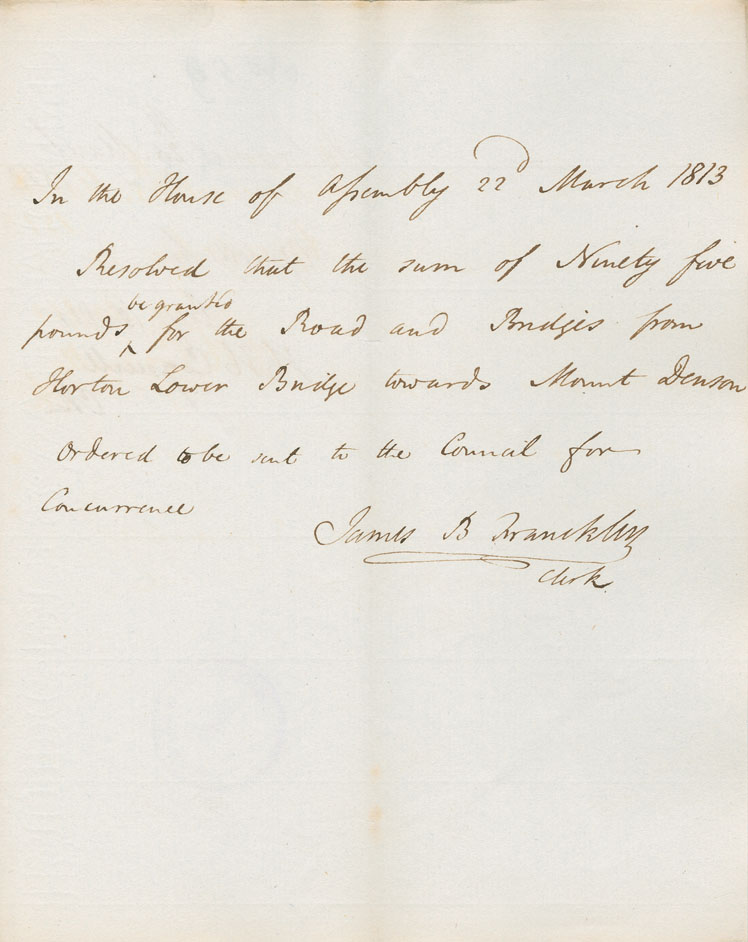 In the House of Assembly 22d March 1813
Resolved that the sum of Ninety five
be granted
pounds ^ for the Road and Bridges from
Horton Lower Bridge towards Mount Denson
Ordered to be sent to the Council for
Concurrence
James B Franckling
Clerk